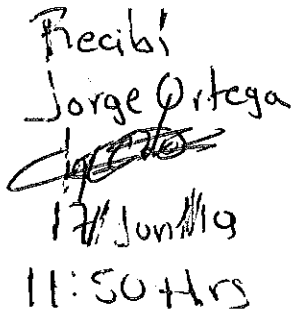 Recibí
Jorge Ortega
17/Jun/19
11:50 Hrs